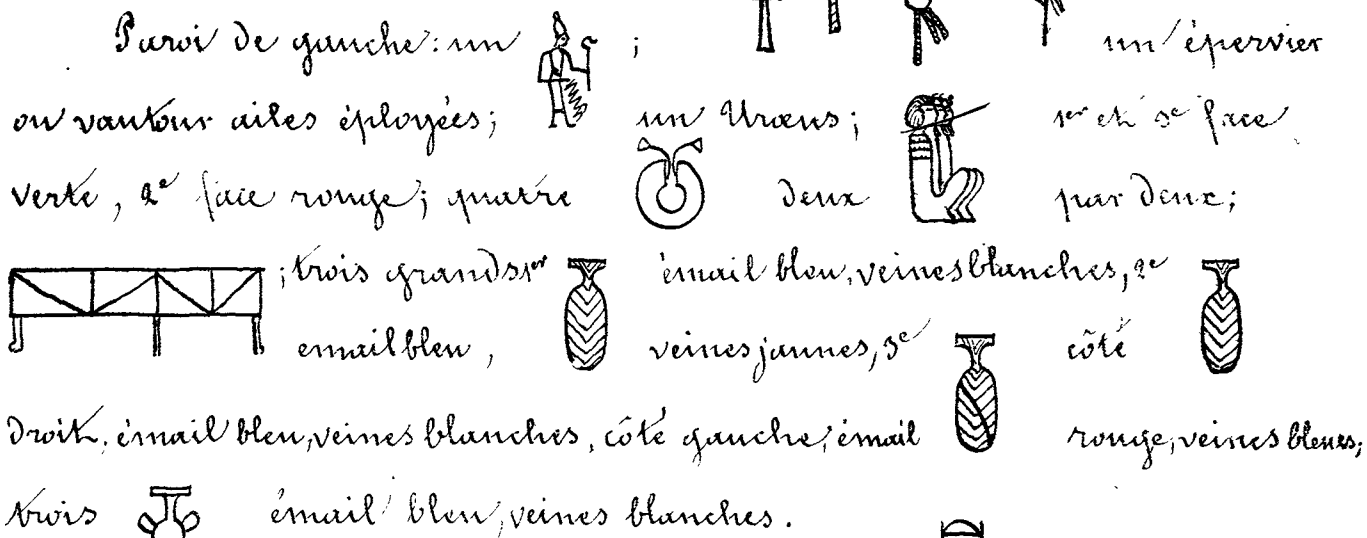 Paroi de gauche: un ; un épervier
ou vautour ailes éployées; un Uræus; 1er et 3e face
verte, 2e face rouge; quatre deux par deux;
; trois grands 1er émail bleu, veines blanches, 2e
email bleu, veines jaunes, 3e côté
droit, émail bleu, veines blanches, côté gauche, émail rouge, veines bleues;
trois émail bleu, veines blanches.